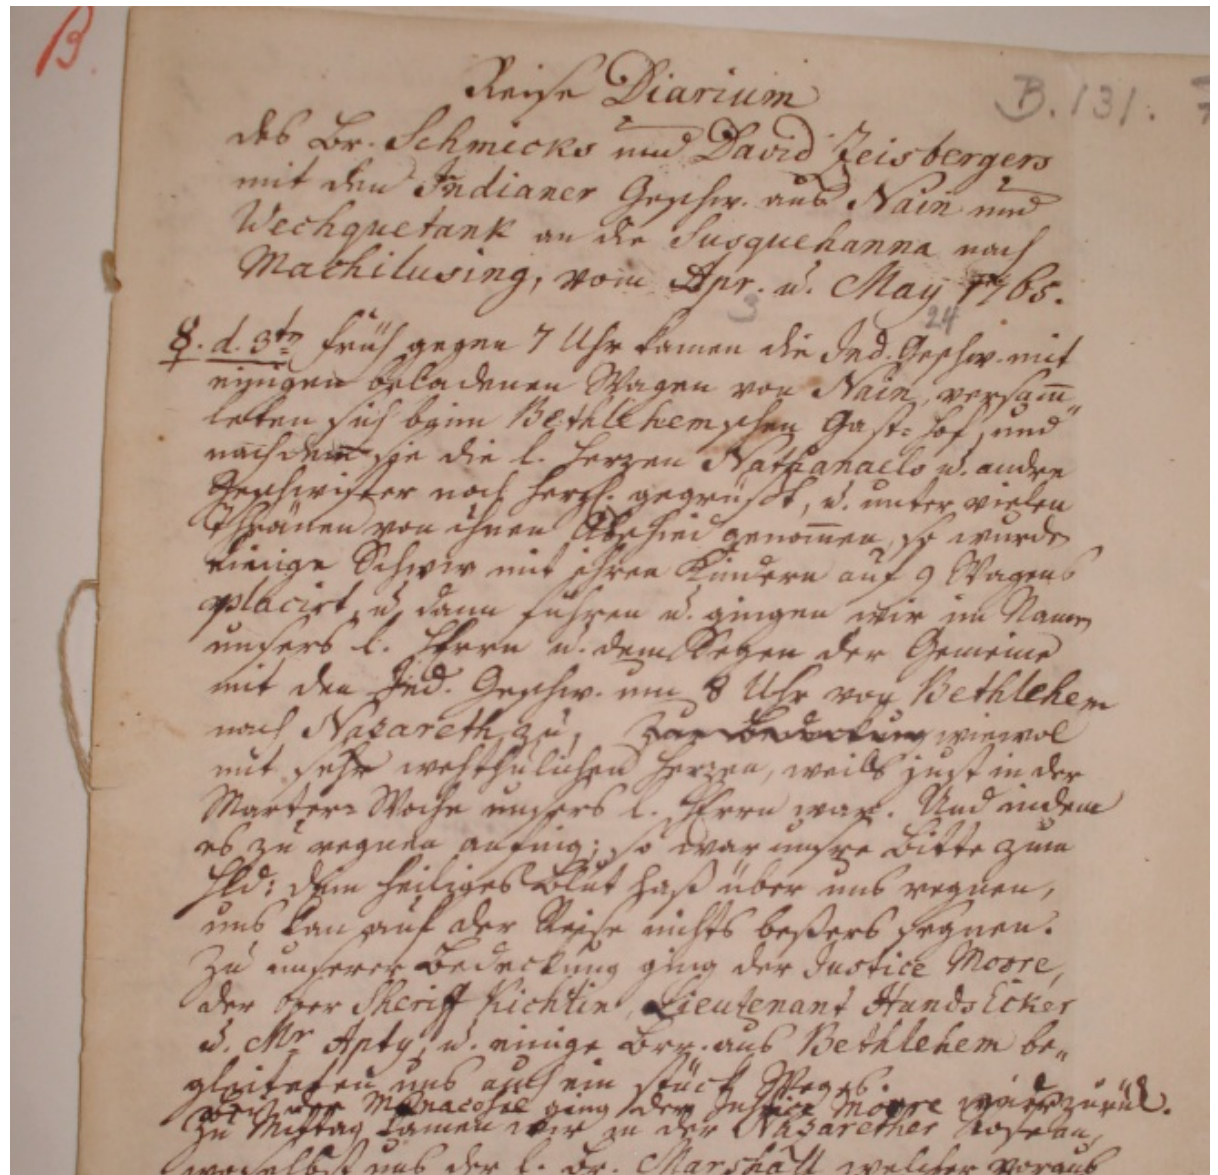 B.
B. 131.
Reise Diarium
des Br. Schmicks und David Zeisbergers
mit den Indianer Geschw. aus Nain und
Wechquetank an die Susquehanna nach
Machilusing, vom Apr. u. May 1765.
3 24
d. 3tn früh gegen 7 Uhr kamen die Ind. Geschw. mit
einigen beladenen Wagen von Nain, versam̅
leten sich beim Bethlehemschen Gast-Hof, und
nachdem sie die l. Herzen Nathanaels u. andre
Geschwister noch herzl. gegrüßt, u. unter vielen
Thränen von ihnen Abschied genom̅en, so wurde
einige Schww mit ihren Kindern auf 9 Wagens
placirt, u. dann fuhren u. gingen wir im Namen
unsers l. Herrn u. dem Segen der Gemeine
mit den Ind. Geschw. um 8 Uhr von Bethlehem
nach Nazareth zu, zur Bedeckung wiewol
mit sehr wehthulichen Herzen, weils just in der
Marter-Woche unsers l. Herrn war. Und indem
es zu regnen anfing; so war unsre Bitte zum
Hld: Dein heiliges Blut laß über uns regnen,
uns kan auf der Reise nichts beßers segnen.
Zu unserer Bedeckung ging der Justice Moore,
der Sheriff Kichlin, Lieutenant Hundsecker
u. Mr Apty, u. einige Brr. aus Bethlehem be-
gleiteten uns auch ein stück Weges.
Bei der Manacosie ging der Justice Moore wieder zurük.
Zu Mittag kamen wir in der Nazarether Rose an,
woselbst uns der l. Br. Marshall welcher voraus